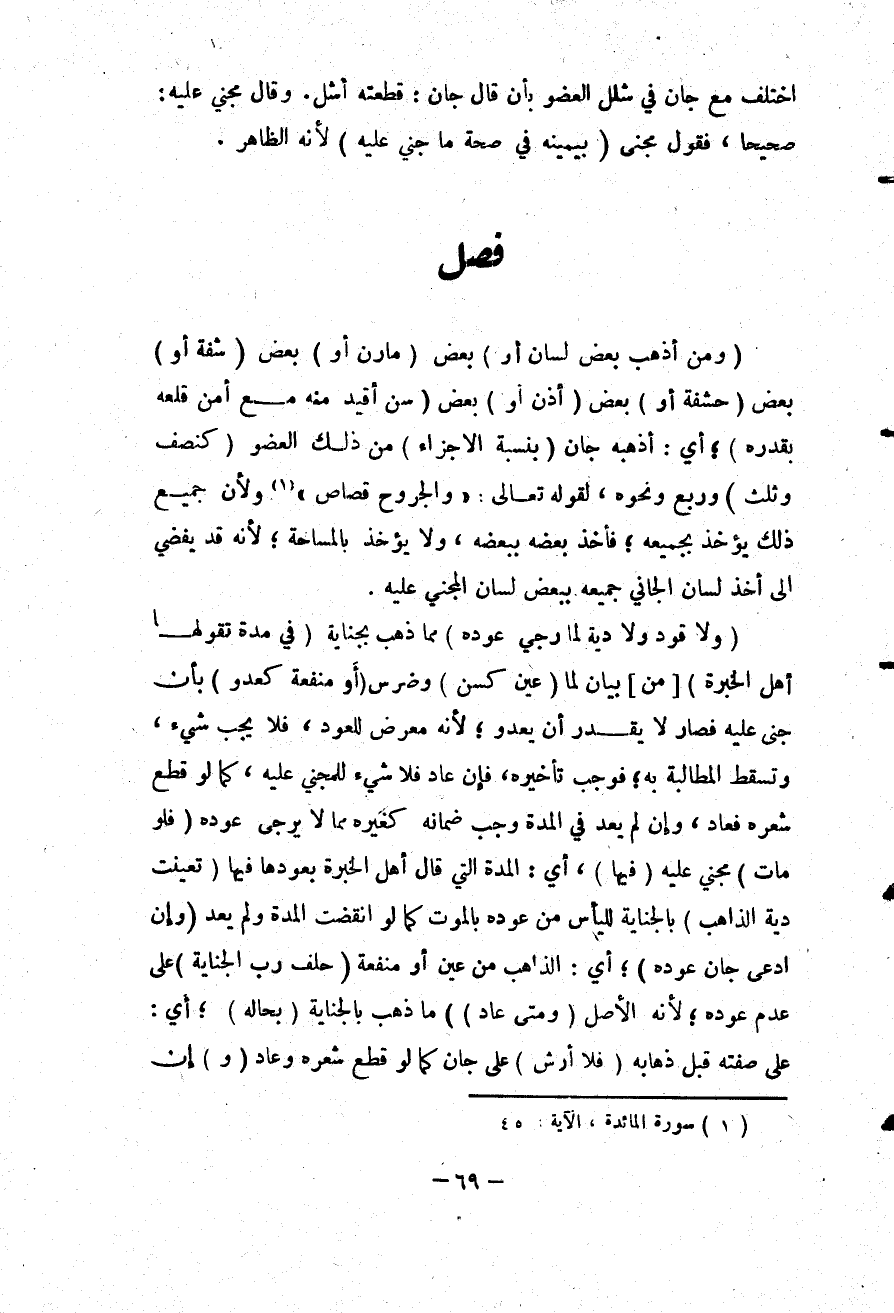 اختلف مع جان في شلل العضو بأن قال جان : قطعته أشل . وقال مجني عليه :
صحيحا ، فقول مجنى ( بيمينه في صحة ما جني عليه ) لأنه الظاهر .
فصل
( ومن أذهب بعض لسان أو ) بعض ( مارن أو ) بعض ( شفة أو )
بعض ( حشفة أو ) بعض ( أذن أو ) بعض ( سن أقيد منه مـــع أمن قلعه
بقدره ) ؛ أي : أذهبه جان ( بنسبة الاجزاء ) من ذلـك العضو ( كنصف
وثلث ) وربع ونحوه ، لقوله تعـالى : « والجروح قصاص »(١) ولأن جميـع
ذلك يؤخذ بجميعه ؛ فأخذ بعضه ببعضه ، ولا يؤخذ بالمساحة ؛ لأنه قد يفضي
الى أخذ لسان الجاني جميعه ببعض لسان المجني عليه .
( ولا قود ولا دية لما رجي عوده ) مما ذهب بجناية ( في مدة تقولهـــا
أهل الخبرة ) [ من ] بيان لما ( عين كسن ) وضرس ( أو منفعة كعدو ) بأن
جنى عليه فصار لا يقـــدر أن يعدو ؛ لأنه معرض للعود ، فلا يجب شيء ،
وتسقط المطالبة به ؛ فوجب تأخيره ، فإن عاد فلا شيء للمجني عليه ، كما لو قطع
شعره فعاد ، وإن لم يعد في المدة وجب ضمانه كغيره مما لا يرجى عوده ( فلو
مات ) مجني عليه ( فيها ) ، أي : المدة التي قال أهل الخبرة بعودها فيها ( تعينت
دية الذاهب ) بالجناية لليأس من عوده بالموت كما لو انقضت المدة ولم يعد ( وإن
ادعى جان عوده ) ؛ أي : الذاهب من عين أو منفعة ( حلف رب الجناية ) على
عدم عوده ؛ لأنه الأصل ( ومتى عاد ) ) ما ذهب بالجناية ( بحاله ) ؛ أي :
على صفته قبل ذهابه ( فلا أرش ) على جان كما لو قطع شعره وعاد ( و ) إن
( ١ ) سورة المائدة ، الآية : ٤٥
– ٦٩ –